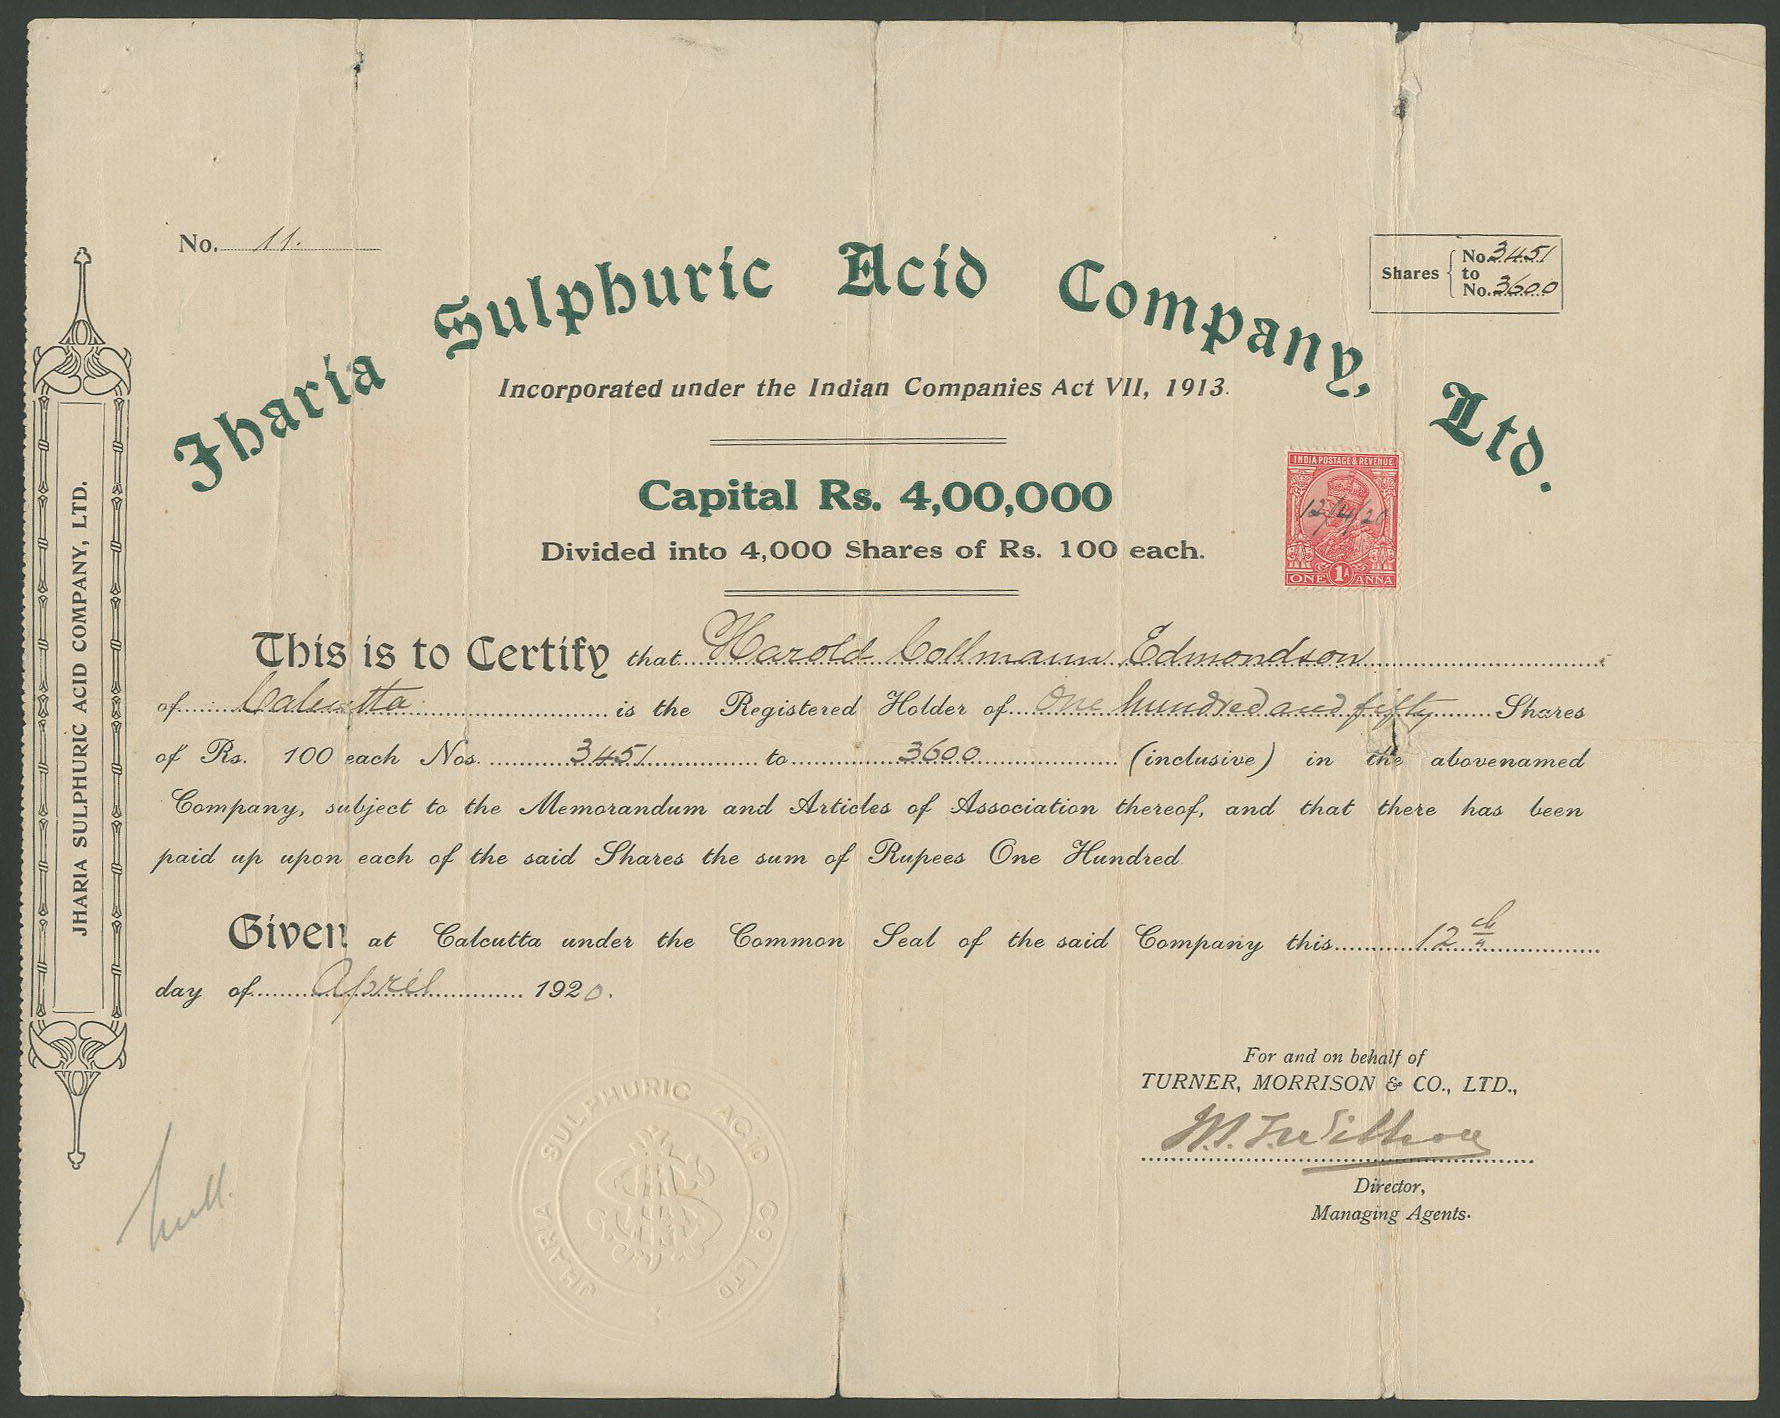 No. 11.
Shares No. 3451
to
No. 3600
Jharia Sulphuric Acid Company, Ltd.
Incorporated under the Indian Companies Act VII, 1913.
Capital Rs. 4,00,000
Divided into 4,000 Shares of Rs. 100 each.
INDIA POSTAGE & REVENUE
12/4/20
ONE 1A ANNA
This is to Certify that Harold Collmann Edmondson
of Calcutta is the Registered Holder of One hundred and fifty Shares
of Rs. 100 each Nos. 3451 to 3600 (inclusive) in the abovenamed
Company, subject to the Memorandum and Articles of Association thereof, and that there has been
paid up upon each of the said Shares the sum of Rupees One Hundred.
Given at Calcutta under the Common Seal of the said Company this 12th
day of April 1920.
For and on behalf of
TURNER, MORRISON & CO., LTD.,
Director,
Managing Agents.
JHARIA SULPHURIC ACID CO LTD
JHARIA SULPHURIC ACID COMPANY, LTD.